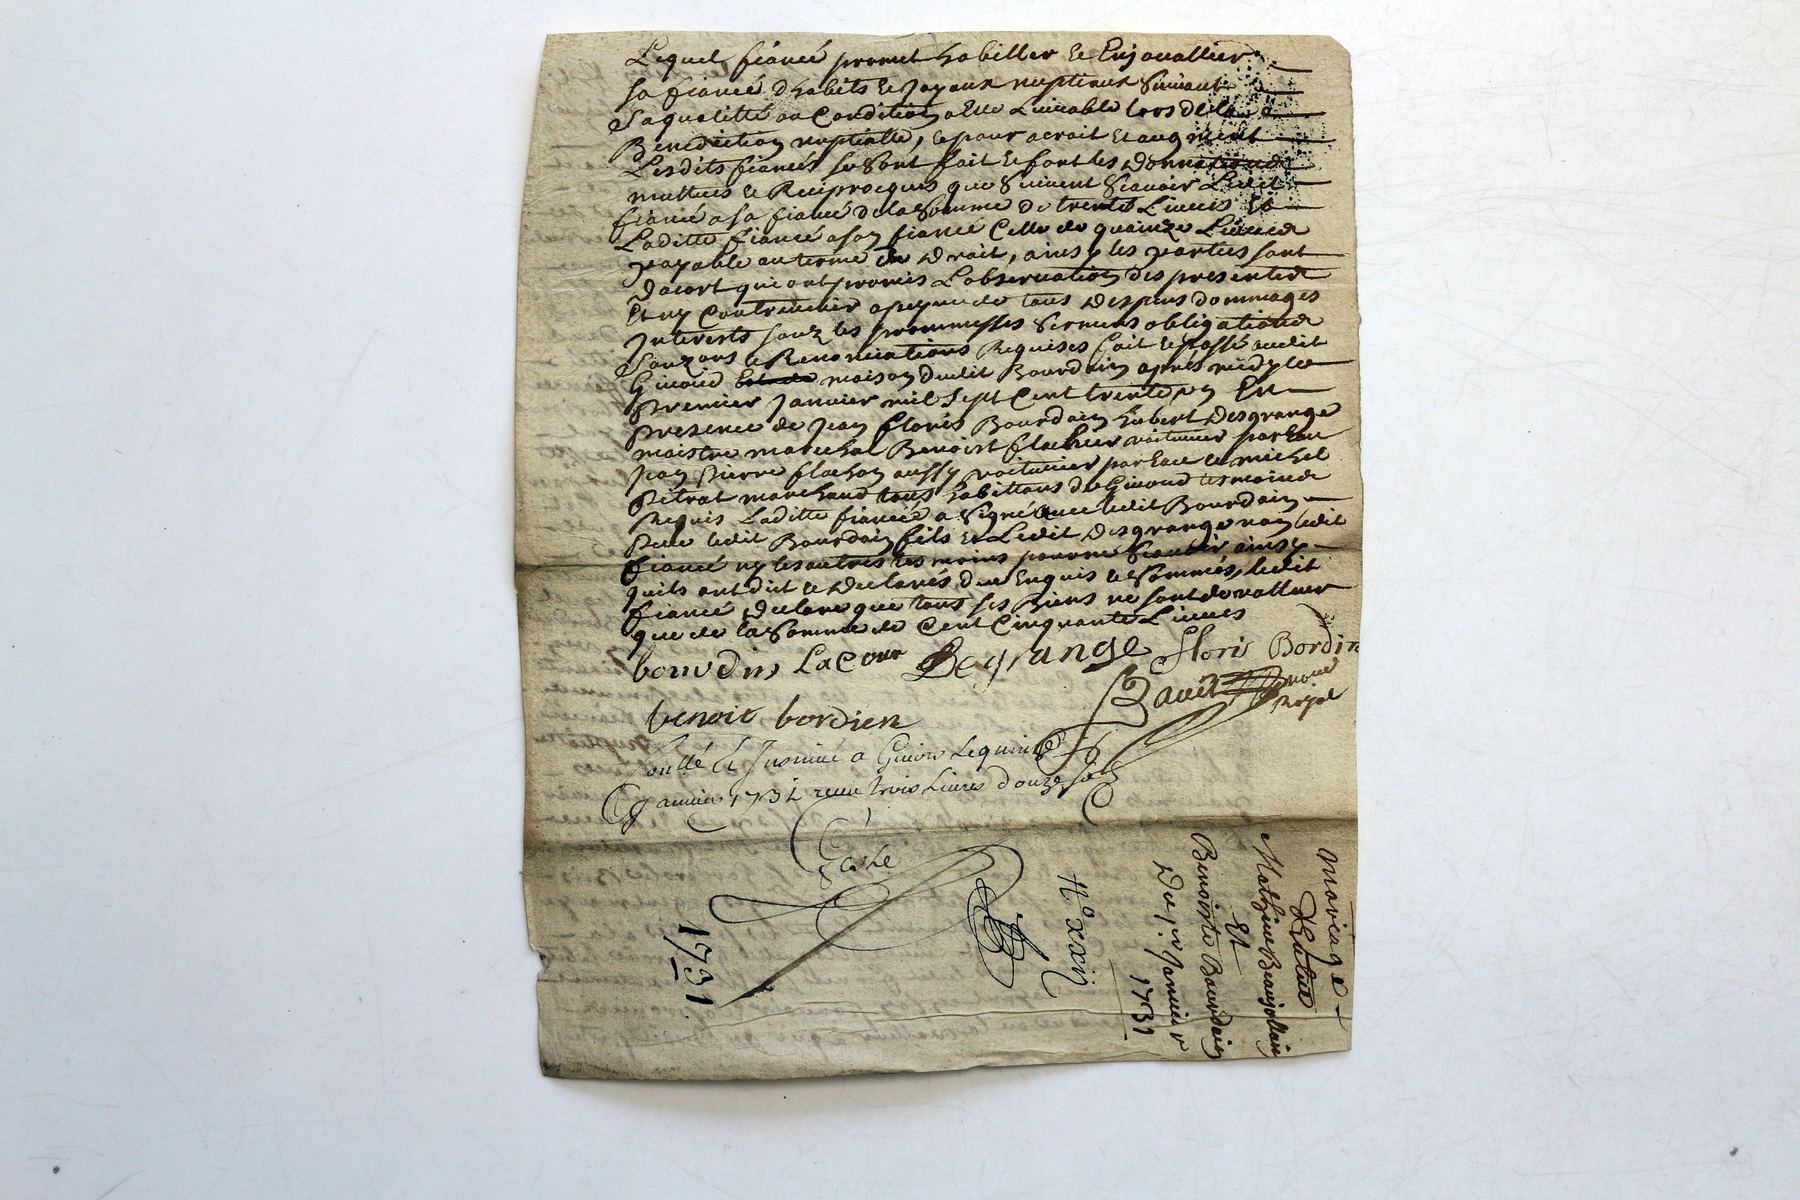 Lequel fiancé promet habiller et Enjouallier
sa fiancé d'habits et Joyaux nuptiaux Suivant
Sa qualitté ou Condition a Elle Livrable Lors de la
Benediction nuptialle, et pour acroit Et augment
Lesdits fiancés se sont fait et font les donnations
muttues et Reciprocques que Suivent Scavoir Ledit
fiancé a sa fiancé de la Somme de trente Livres Et
Laditte fiancé a son fiancé Celle de quainze Livres
payable au terme du Droit, ainsy les parties sont
Dacort qui ont promis L'observation des presentes
Et ny Contrevenir a peyne de tous Despens dommages
Interests souz les prommesses Sermens obligations
Souz ons et Renonciations Requises fait et passé audit
Givord maison dudit Bourdain aprés midy le
premier Janvier mil Sept Cent trente un En
presence de Jean floris Bourdain hubert Desgrange
maistre marechal Benoist flachier voiturier par Eau
Jean Pierre flachon aussy voiturier par Eau et michel
Petrat marchand tous habittans de Givord tesmoins
Requis Laditte fiancée a Signé avec ledit Bourdain
Pere ledit Bourdain fils Et Ledit desgrange non ledit
fiancé ny les autres tesmoins pour ne Scavoir ainsy
quils ont dit et declarés de ce Enquis et Sommés, ledit
fiancé declare que tous ses Biens ne sont de valleur
que de la Somme de Cent Cinquante Livres
bourdin LaCour Desgrange floris Bordin
Royal
benoit bordien
Conllé et Insinué a Givors Le quinze
Janvier 1731 receu trois Livres douze sols
1731
No xxij
mariage
Mathieu Beaujollain
Et
Benoiste Bourdain
Du 1er Janvier
1731